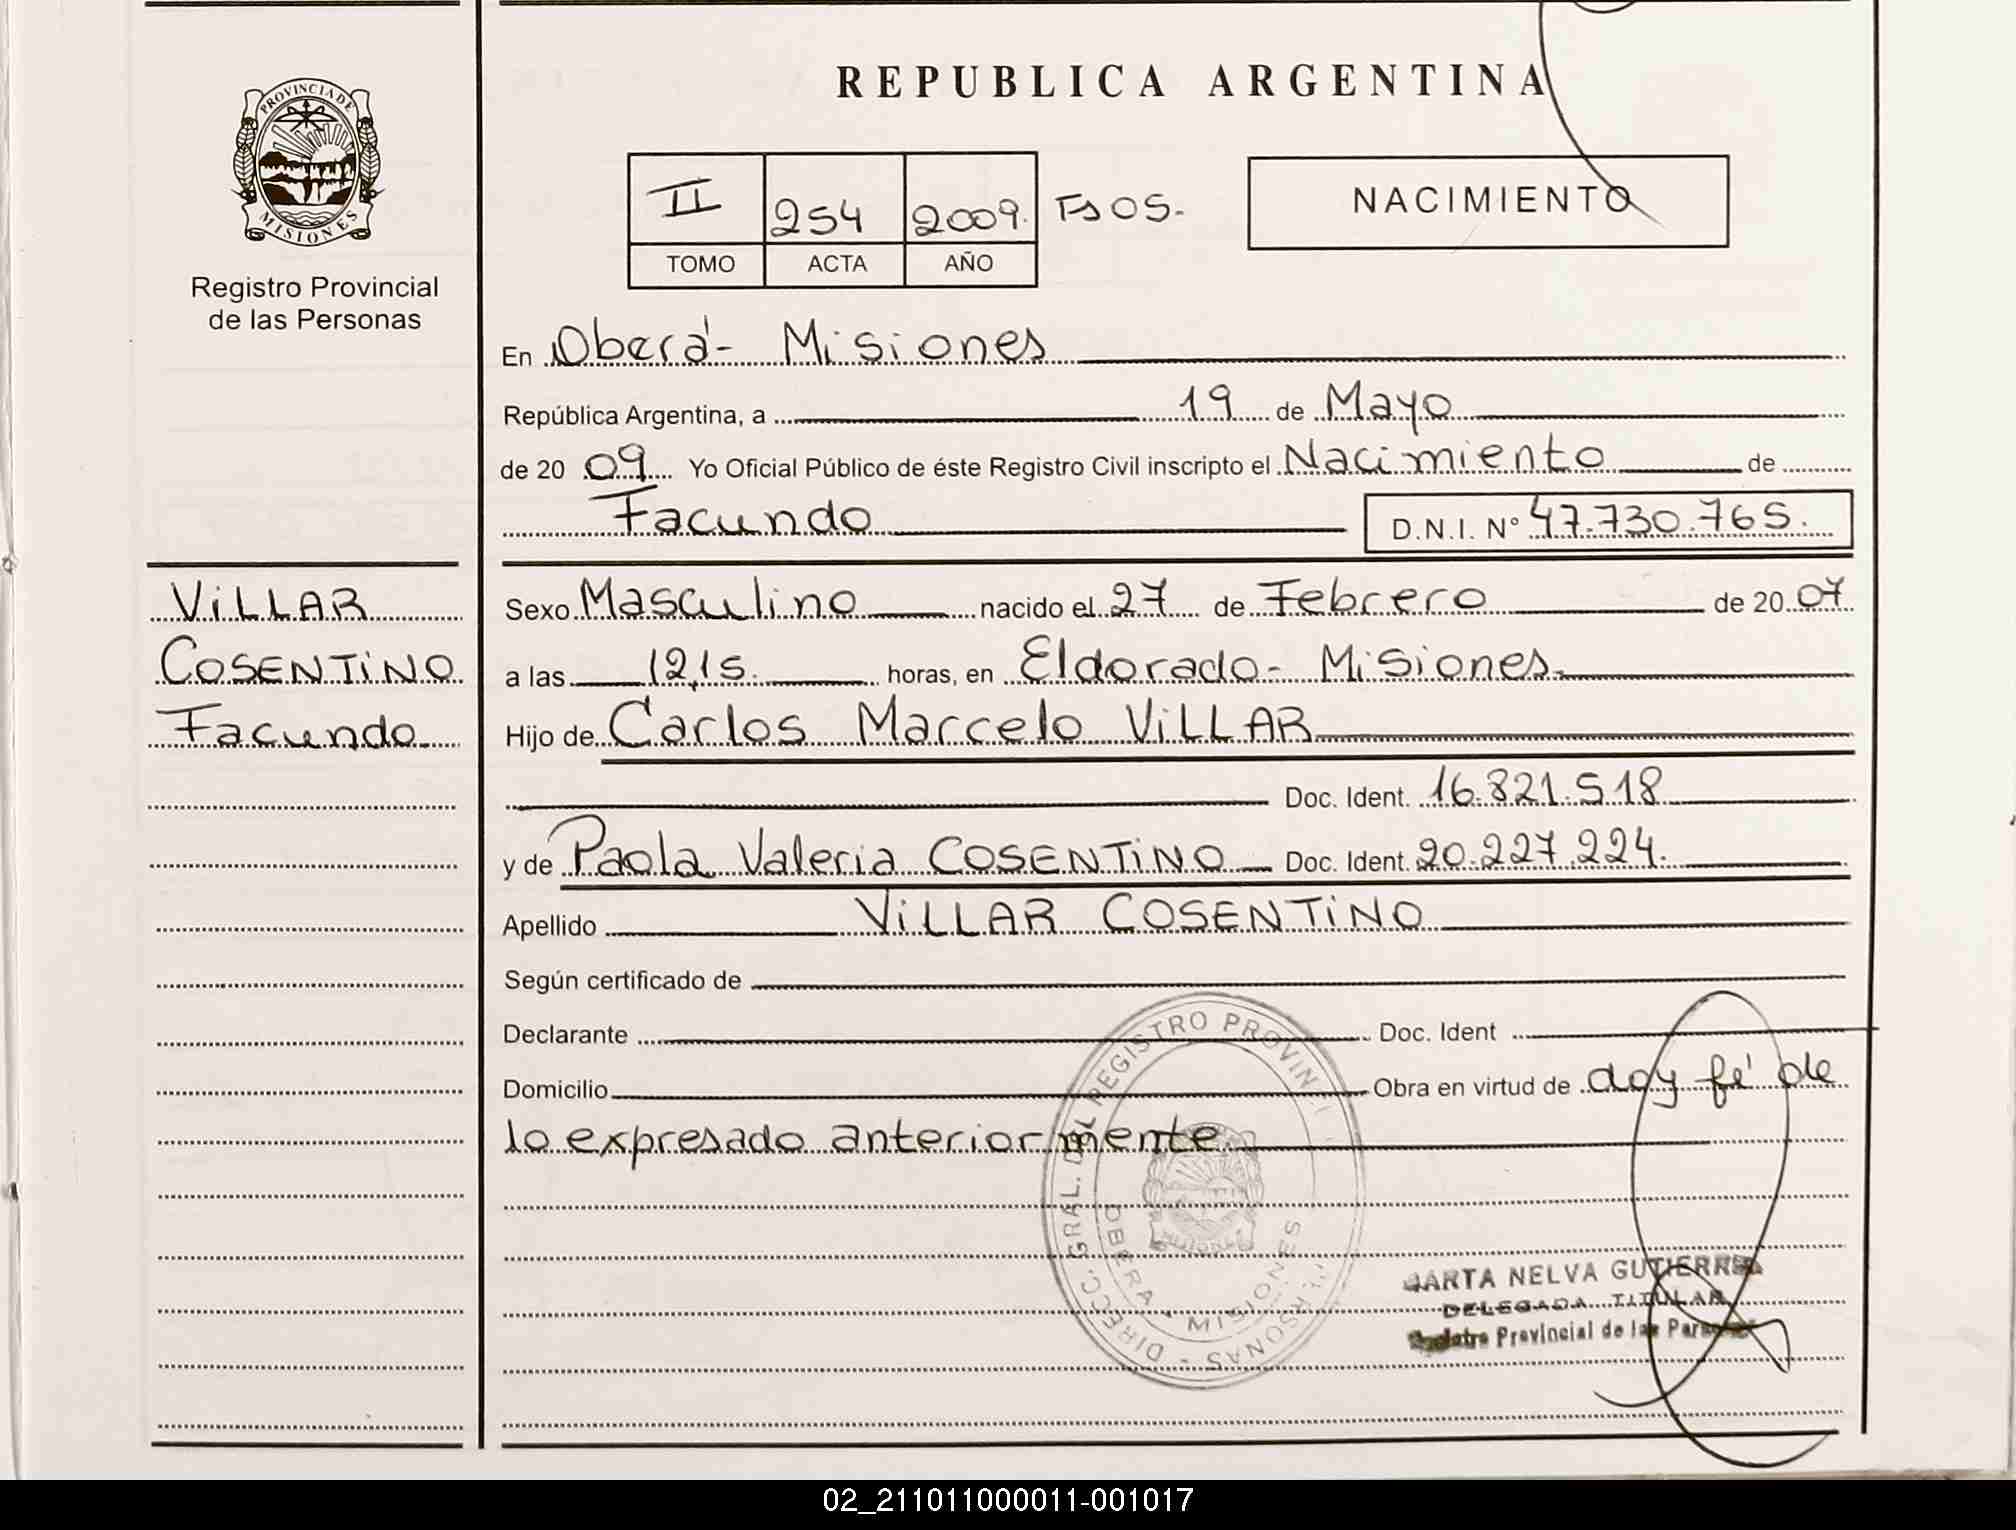 REPUBLICA ARGENTINA
PROVINCIA DE
MISIONES
Registro Provincial
de las Personas
II 254 2009. Fs 05.-
TOMO ACTA AÑO
NACIMIENTO
En Oberá - Misiones
República Argentina, a 19 de Mayo
de 20 09 Yo Oficial Público de éste Registro Civil inscripto el Nacimiento de
Facundo D.N.I. N° 47.730.765.
VILLAR
COSENTINO
Facundo
Sexo Masculino nacido el 27 de Febrero de 20 07
a las 12,15 horas, en Eldorado - Misiones.
Hijo de Carlos Marcelo VILLAR
Doc. Ident. 16.821.518
y de Paola Valeria COSENTINO Doc. Ident. 20.227.224.
Apellido VILLAR COSENTINO
Según certificado de
Declarante Doc. Ident
Domicilio Obra en virtud de doy fé de
lo expresado anteriormente.
DIRECC. GRAL. DEL REGISTRO PROVINCIAL PERSONAS
OBERA • MISIONES
MISIONES
NELVA GUTIERREZ
DELEGADA TITULAR
Provincial de las Personas
02_211011000011-001017